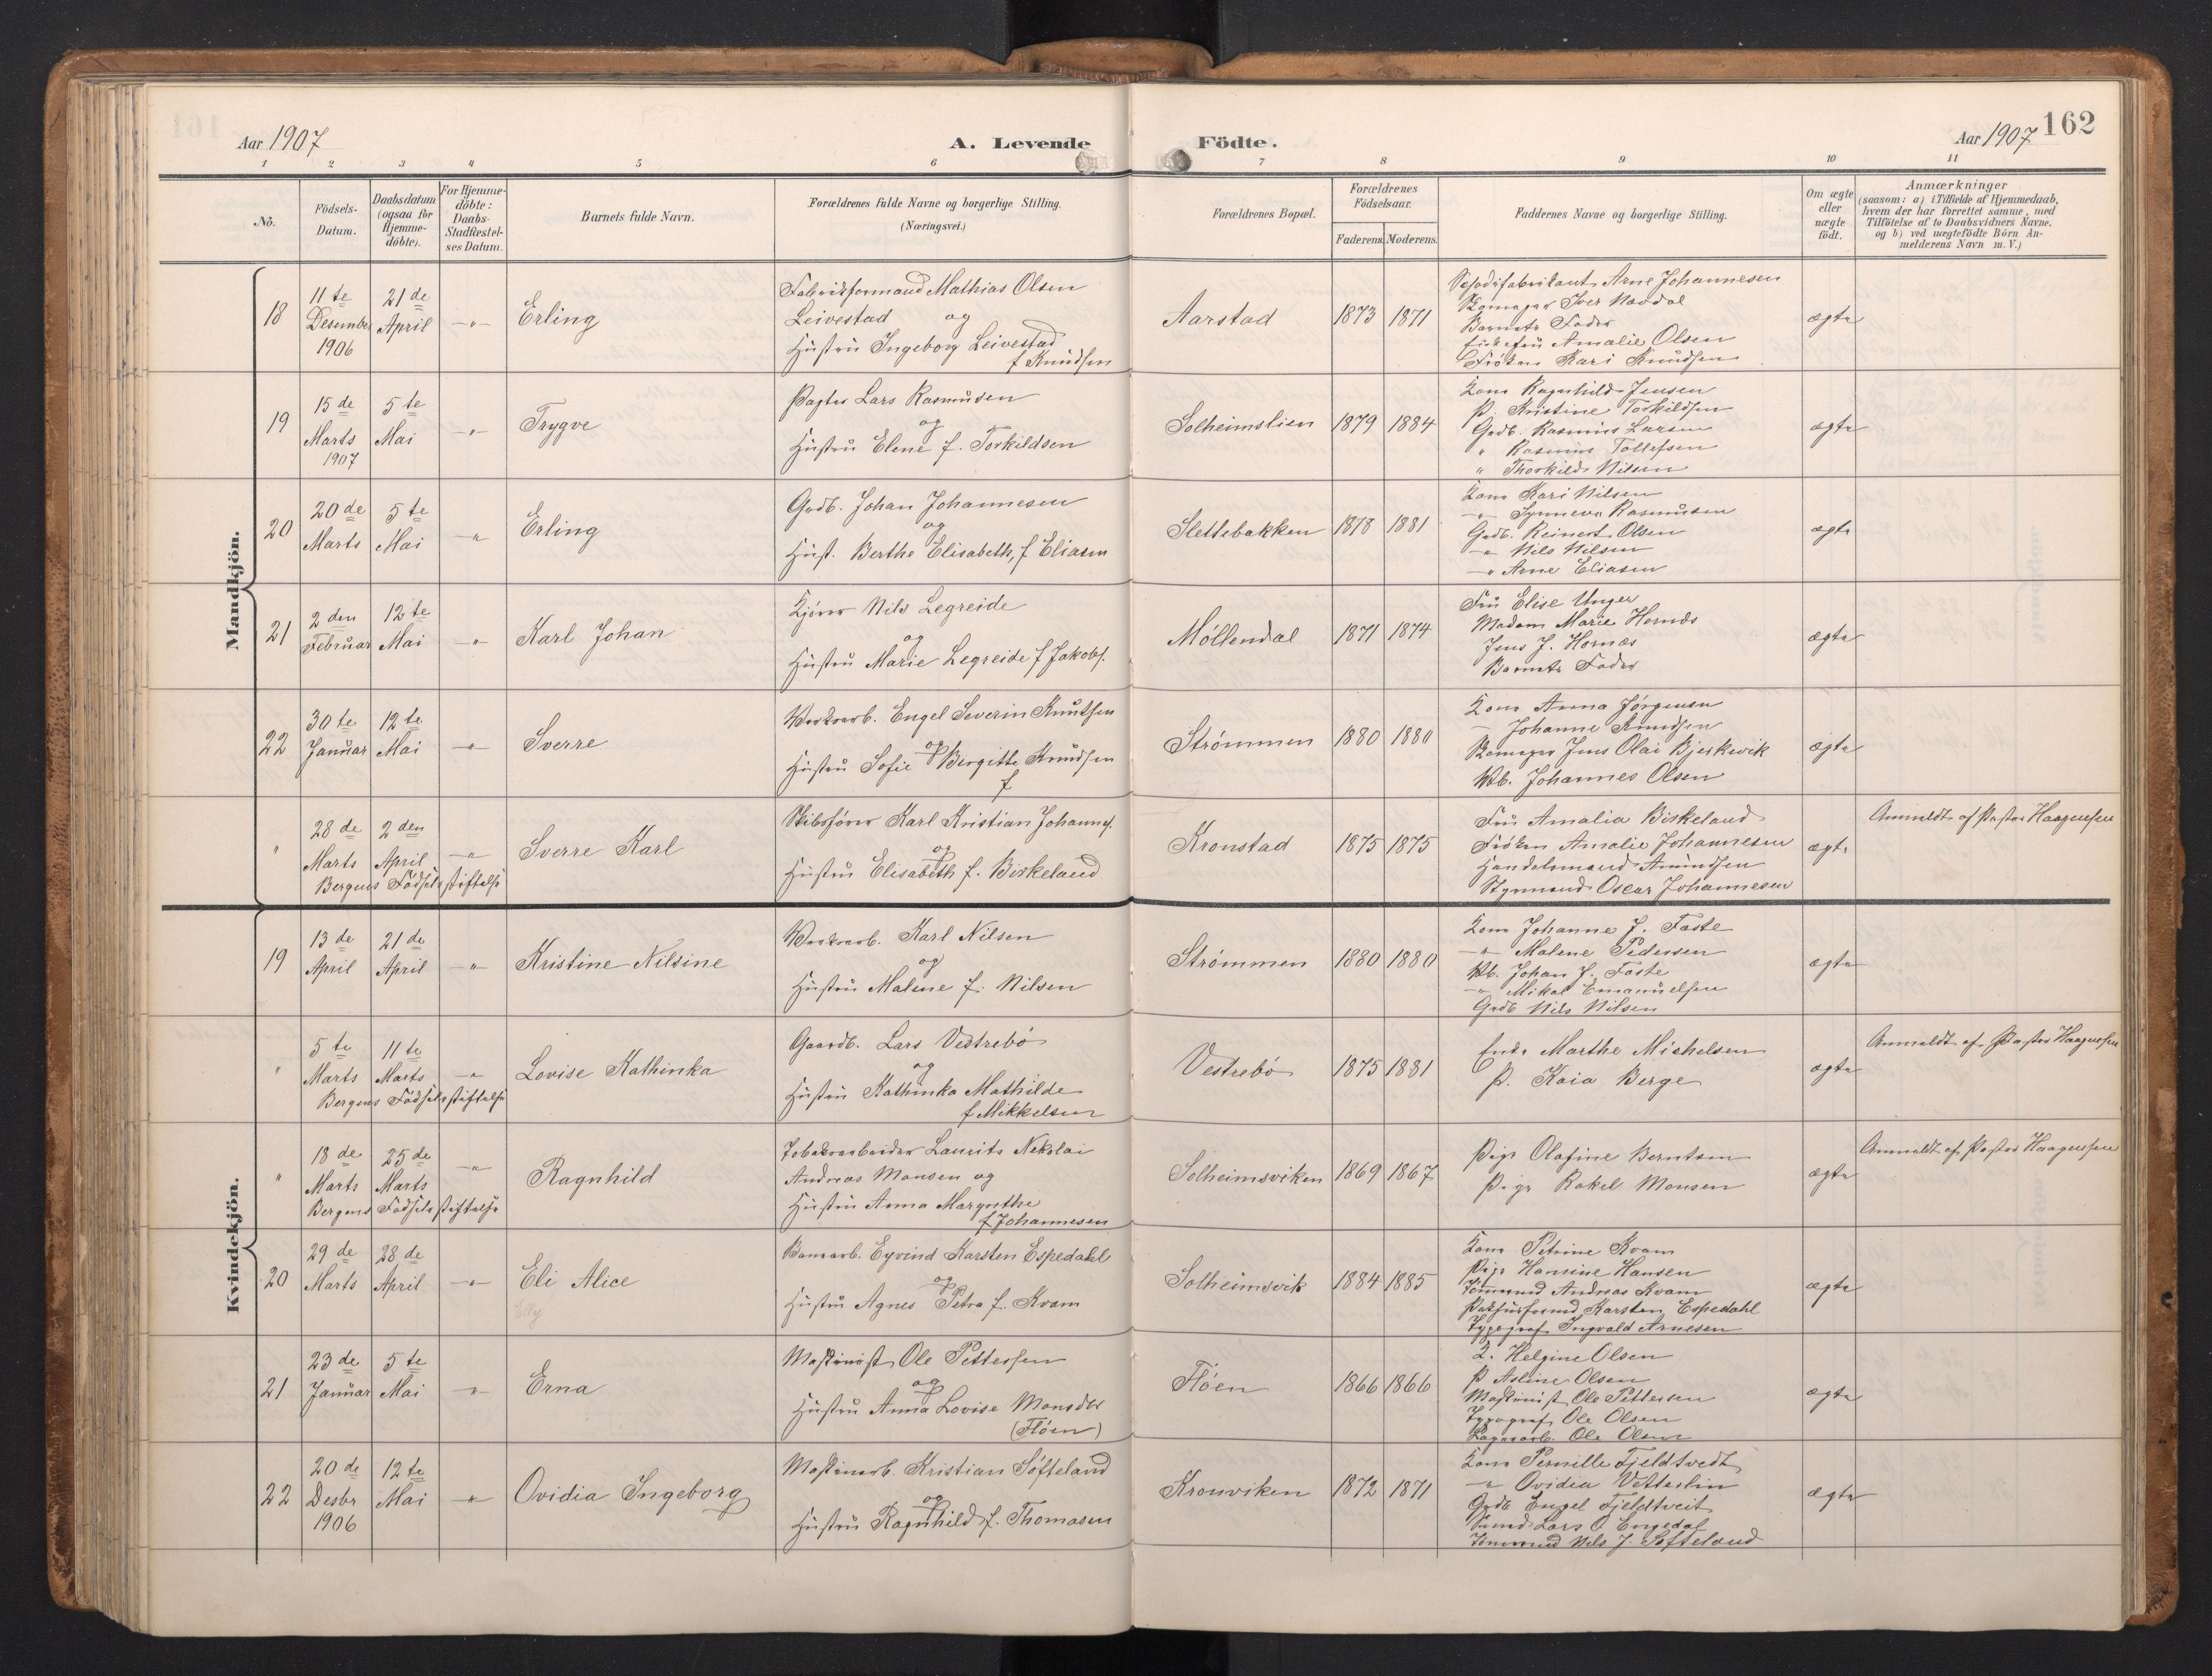 Aar 1907
A. Levende
Födte.
Aar 1907
162
1 2 3 4 5 6 7 8 9 10 11
No.
Födsels-
Datum.
Daabsdatum
(ogsaa for
Hjemme-
döbte).
For Hjemme-
döbte:
Daabs-
Stadfæstel-
ses Datum.
Barnets fulde Navn.
Forældrenes fulde Navne og borgerlige Stilling.
(Næringsvei.)
Forældrenes Bopæl.
Forældrenes
Födselsaar.
Faderens. Moderens.
Faddernes Navne og borgerlige Stilling.
Om ægte
eller
uægte
födt.
Anmærkninger
(saasom: a) i Tilfælde af Hjemmedaab,
hvem der har forrettet samme, med
Tilföielse af to Daabsvidners Navne.
og b) ved uægtefödte Börn An-
melderens Navn m. V.)
Mandkjön.
18
11te
Desember
1906
21de
April
-"-
Erling
Fabrikformand Mathias Olsen
Leivestad og
Hustru Ingeborg Leivestad
f Knudsen
Aarstad
1873 1871
Arne Johannesen
Skomager Iver Navdal
Barnets Fader
Amalie Olsen
Fröken Kari Knudsen
ægte
19
15de
Marts
1907
5te
Mai
-"-
Trygve
Pagter Lars Rasmusen
og
Hustru Elene f. Torkildsen
Solheimslien
1879 1884
Kone Ragnhild Jensen
P. Kristine Torkildsen
Grdb. Rasmus Larsen
" Rasmus Tollefsen
" Thorkild Nilsen
ægte
20
20de
Marts
5te
Mai
-"-
Erling
Grdb. Johan Johannesen
og
Hust. Berthe Elisabeth, f Eliasen
Slettebakken
1878 1881
Kone Kari Nilsen
-"- Synneva Rasmusen
Grdb. Reinert Olsen
-"- Nils Nilsen
-"- Arne Eliasen
ægte
21
2den
Februar
12te
Mai
-"-
Karl Johan
Kjörer Nils Legreide
og
Hustru Marie Legreide f Jakobs.
Möllendal
1871 1874
Fru Elise Unger
Madam Marie Hornæs
Jens J. Hornæs
Barnets Fader
ægte
22
30te
Januar
12te
Mai
-"-
Sverre
Værksarb. Engel Severin Knutsen
og
Hustru Sofie Birgitte Knudsen
f
Strömmen
1880 1880
Kone Anna Jörgensen
- Johanne Knudsen
Skomager Jens Olai Bjerkvik
Vb. Johannes Olsen
ægte
"
28de
Marts
2den
April
-"-
Bergens Födselsstiftelse
Sverre Karl
Skibsförer Karl Kristian Johannes.
og
Hustru Elisabeth f. Birkeland
Kronstad
1875 1875
Fru Amalia Birkeland
Fröken Amalie Johannesen
Handelsmand Amundsen
Styrmand Oscar Johannesen
ægte
Anmeldt af Pastor Haagensen
Kvindekjön.
19
13de
April
21de
April
-"-
Kristine Nilsine
Værksarb. Karl Nilsen
og
Hustru Malene f. Nilsen
Strömmen
1880 1880
Kone Johanne J. Faste
-"- Malene Pedersen
Vb. Johan J. Faste
-"- Mikal Emanuelsen
Grdb Nils Nilsen
ægte
"
5te
Marts
11te
Marts
-"-
Bergens Födselsstiftelse
Lovise Kathinka
Gaardb. Lars Vestrebö
og
Hustru Kathinka Mathilde
f Mikkelsen
Vestrebö
1875 1881
Enke Marthe Michelsen
P. Kaia Berge
ægte
Anmeldt af Pastor Haagensen
"
18de
Marts
25de
Marts
-"-
Bergens Födselsstiftelse
Ragnhild
Tobaksarbeider Laurits Nikolai
Andreas Monsen og
Hustru Anna Margrethe
f Johannesen
Solheimsviken
1869 1867
Pige Olafine Berntsen
Pige Rakel Monsen
ægte
Anmeldt af Pastor Haagensen
20
29de
Marts
28de
April
-"-
Eli Alice
Elly
Baneearb. Eyvind Karsten Espedahl
og
Hustru Agnes Petra f. Kvam
Solheimsvik
1884 1885
Kone Petrine Kvam
Pige Hansine Hansen
Tömmermd Andreas Kvam
Karsten Espedahl
Typograf Ingvald Arnesen
ægte
21
23de
Januar
5te
Mai
-"-
Erna
Maskinist Ole Pettersen
og
Hustru Anna Lovise Monsdtr
(Flöen)
Flöen
1866 1866
K. Helgine Olsen
P Asline Olsen
Maskinist Ole Pettersen
Typograf Ole Olsen
Lagerarb. Ole Olsen
ægte
22
20de
Desbr
1906
12te
Mai
-"-
Ovidia Ingeborg
Maskinarb. Kristian Söfteland
og
Hustru Ragnhild f. Thomasen
Kronviken
1872 1871
Kone Pernille Fjeldtvedt
-"- Ovidia Vetterlin
Grdb Engel Fjeldtveit
Lars O. Engedal
Tömmermd Nils J. Söfteland
ægte